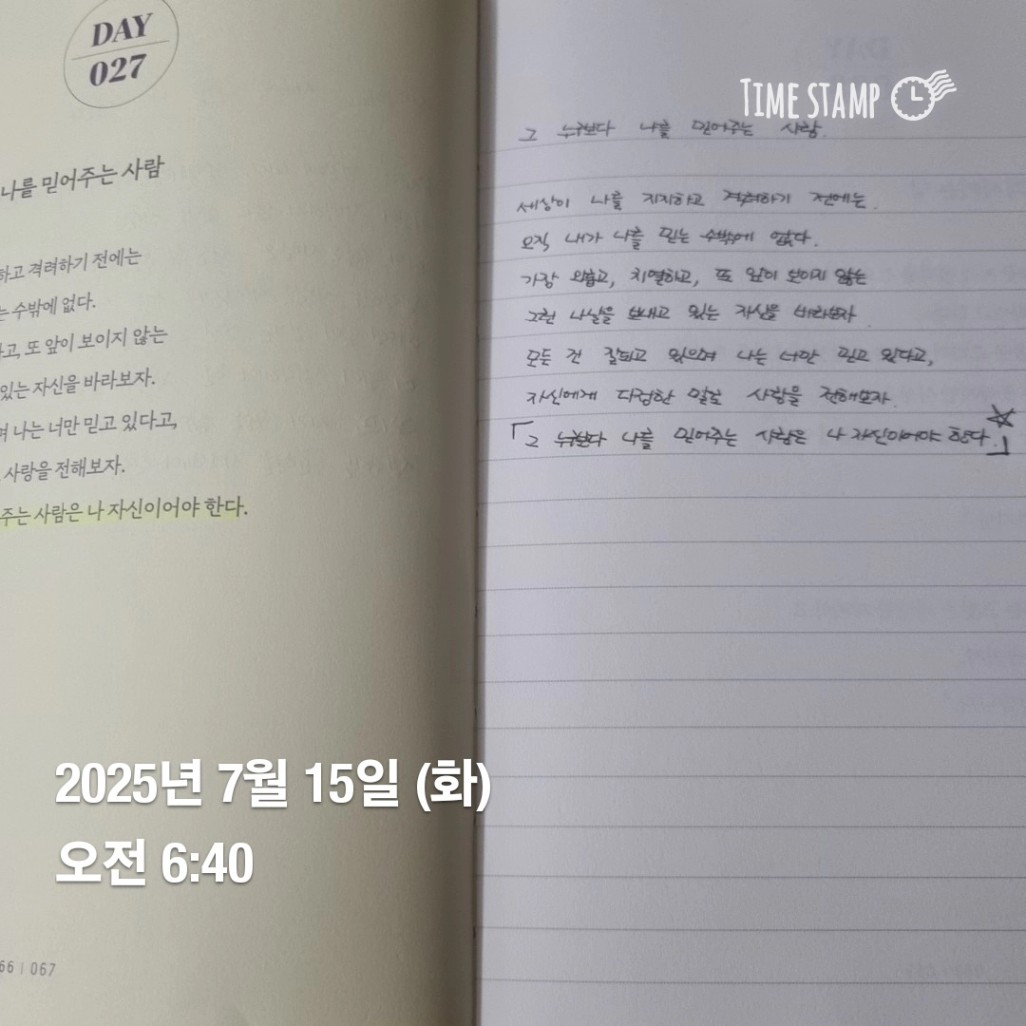 DAY
027
나를 믿어주는 사람
하고 격려하기 전에는
수밖에 없다.
고, 또 앞이 보이지 않는
있는 자신을 바라보자.
며 나는 너만 믿고 있다고,
사랑을 전해보자.
주는 사람은 나 자신이어야 한다.
66 | 067
TIME STAMP
그 누구보다 나를 믿어주는 사람.
세상이 나를 지지하고 격려하기 전에는.
오직 내가 나를 믿는 수밖에 없다.
가장 외롭고, 치열하고, 또 앞이 보이지 않는
그런 나날을 보내고 있는 자신을 바라보자.
모든 건 잘되고 있으며 나는 너만 믿고 있다고,
자신에게 다정한 말로 사랑을 전해보자.
「그 누구보다 나를 믿어주는 사람은 나 자신이어야 한다.」
2025년 7월 15일 (화)
오전 6:40